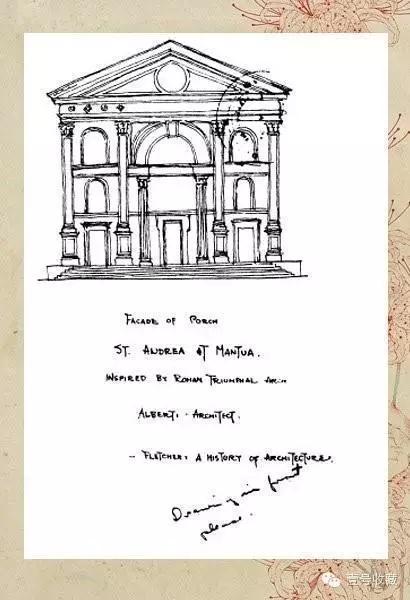 FACADE OF PORCH
ST. ANDREA AT MANTUA.
INSPIRED BY ROMAN TRIUMPHAL ARCH
ALBERTI - ARCHITECT.
- FLETCHER: A HISTORY OF ARCHITECTURE.
Drawing in front
please.
壹号收藏